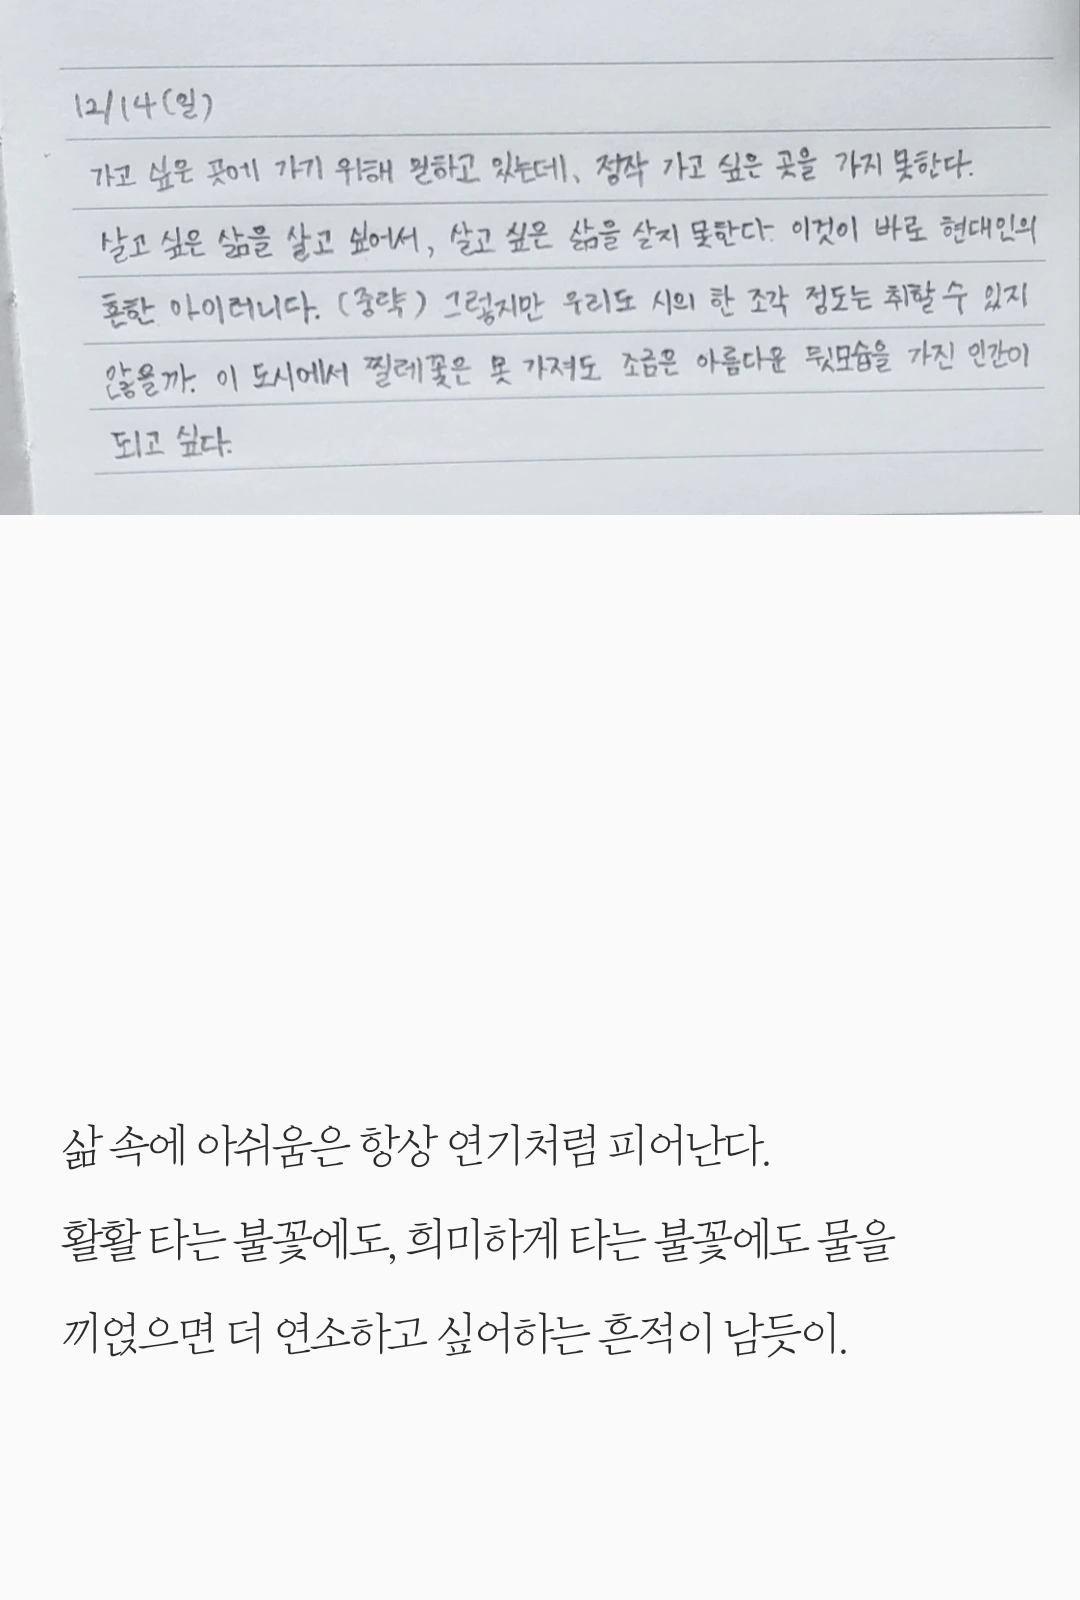 12/14(일)
가고 싶은 곳에 가기 위해 일하고 있는데, 정작 가고 싶은 곳을 가지 못한다.
살고 싶은 삶을 살고 싶어서, 살고 싶은 삶을 살지 못한다. 이것이 바로 현대인의
흔한 아이러니다. (중략) 그렇지만 우리도 시의 한 조각 정도는 취할 수 있지
않을까. 이 도시에서 찔레꽃은 못 가져도 조금은 아름다운 뒷모습을 가진 인간이
되고 싶다.
삶 속에 아쉬움은 항상 연기처럼 피어난다.
활활 타는 불꽃에도, 희미하게 타는 불꽃에도 물을
끼얹으면 더 연소하고 싶어하는 흔적이 남듯이.